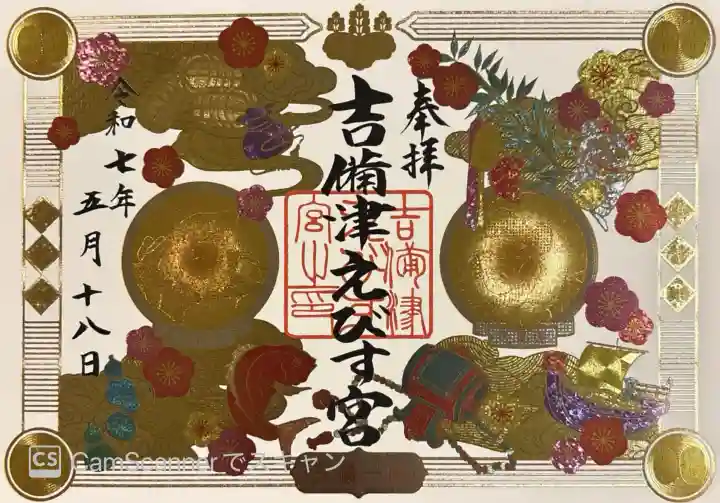 奉拝
吉備津えびす宮
令和七年
五月十八日
CS CamScannerでスキャン